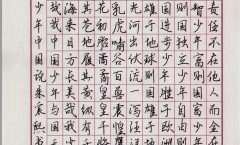 责任不在他人而全在
智少年富则国富少年
则国独立少年自由则
国进步少年胜于欧洲
雄于地球则国雄于地
河出伏流一泻汪洋
乳虎啸谷百兽震惶鹰
花初胎矞矞皇皇
其苍地履其黄纵有
海来日方长美哉我少
哉我中国少年与国
少年中国说